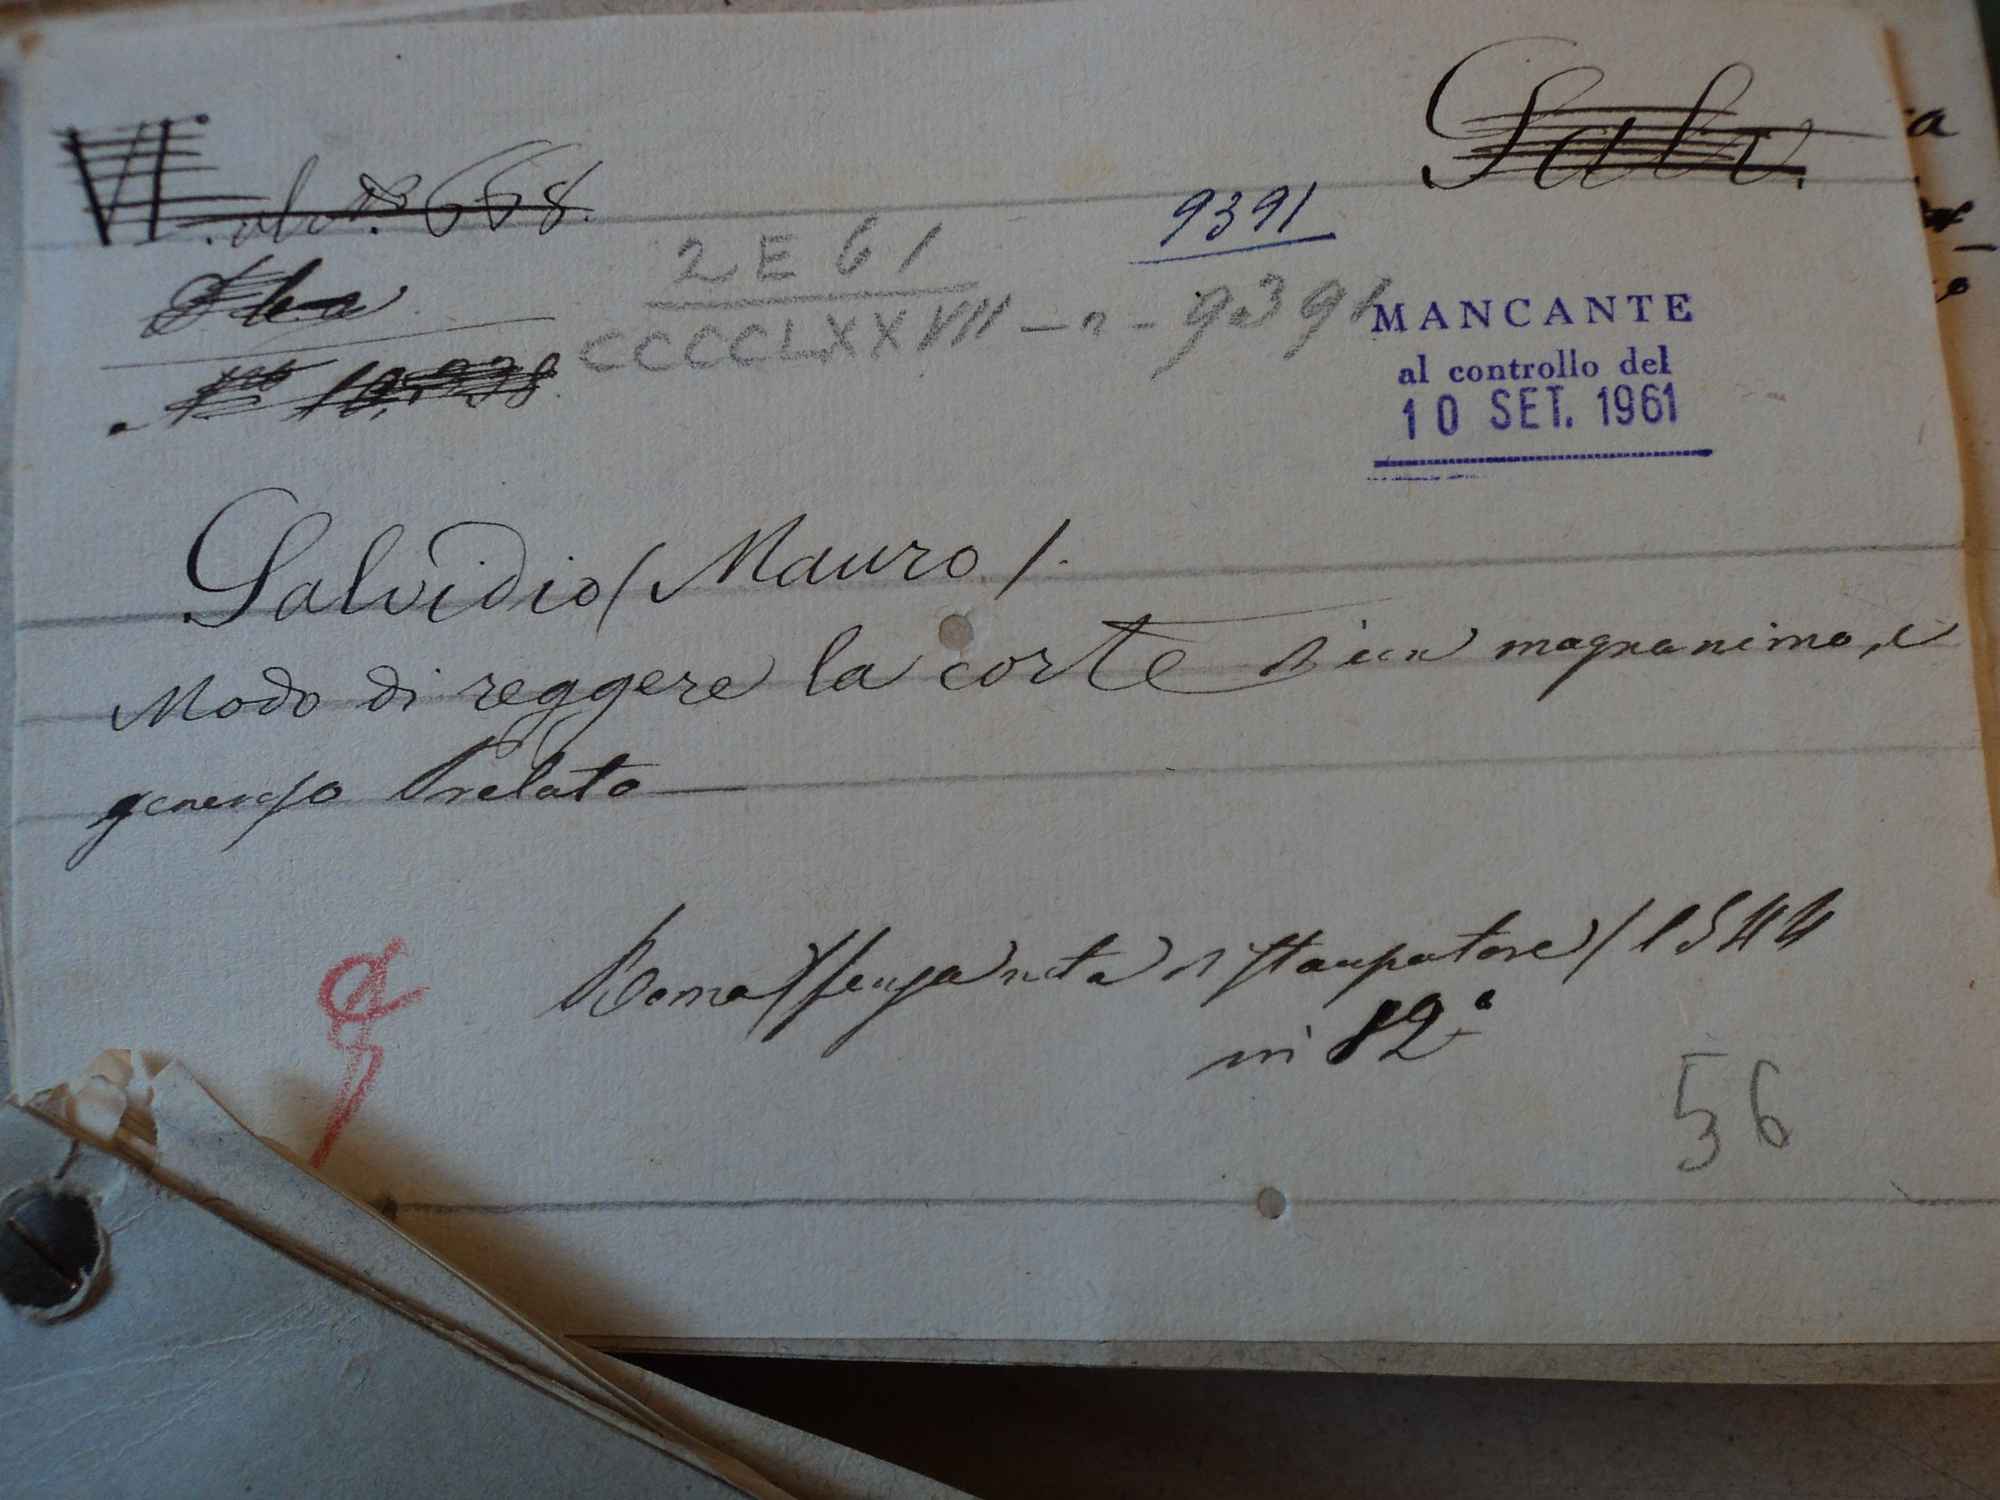 Salv.
VI. alv. no 668.
9391
2 E 61
CCCCLXXVII - n - 9391
MANCANTE
al controllo del
10 SET. 1961
No 10,538.
Salvidio (Mauro).
Modo di reggere la corte d'un magnanimo, e
generoso Prelato
Roma (senza nota di stampatore) 1544
in 12°
56